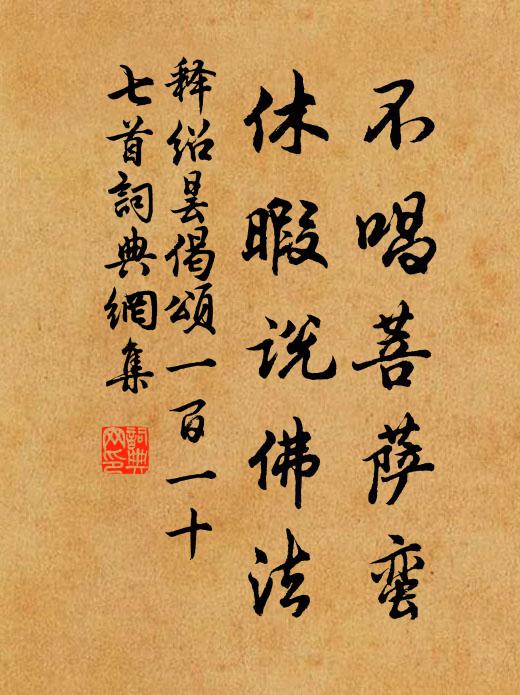 不唱菩萨蛮
休暇说佛法
释绍昙偈頌一百一十
七首詞典網集
詞典
网印